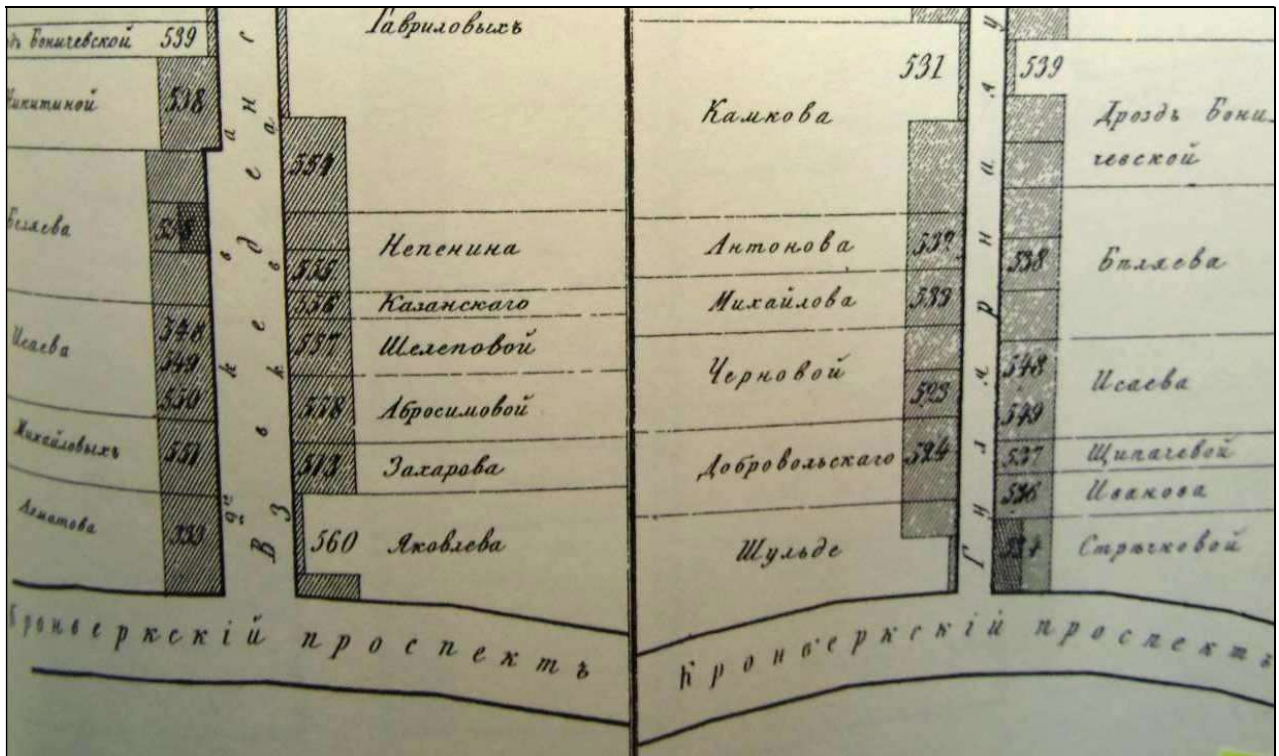 Боничевской 539
Никитиной 538
Беляева
Исаева 548
549
550
Михайловыхъ 551
333
Введенс
Гавриловыхъ
554
Непенина
555
Казанскаго 556
Шелеповой 557
Абросимовой 558
Захарова 513
560 Яковлева
Кронверкскій проспектъ
531
Камкова
Антонова 532
Михайлова 533
Черновой 523
Добровольскаго 524
Шульде
Гулярная у
539
Дроздъ Бони-
чевской
538 Бѣляева
548 Исаева
549
537 Щипачевой
536 Иванова
Стрѣчковой
Кронверкскій проспектъ